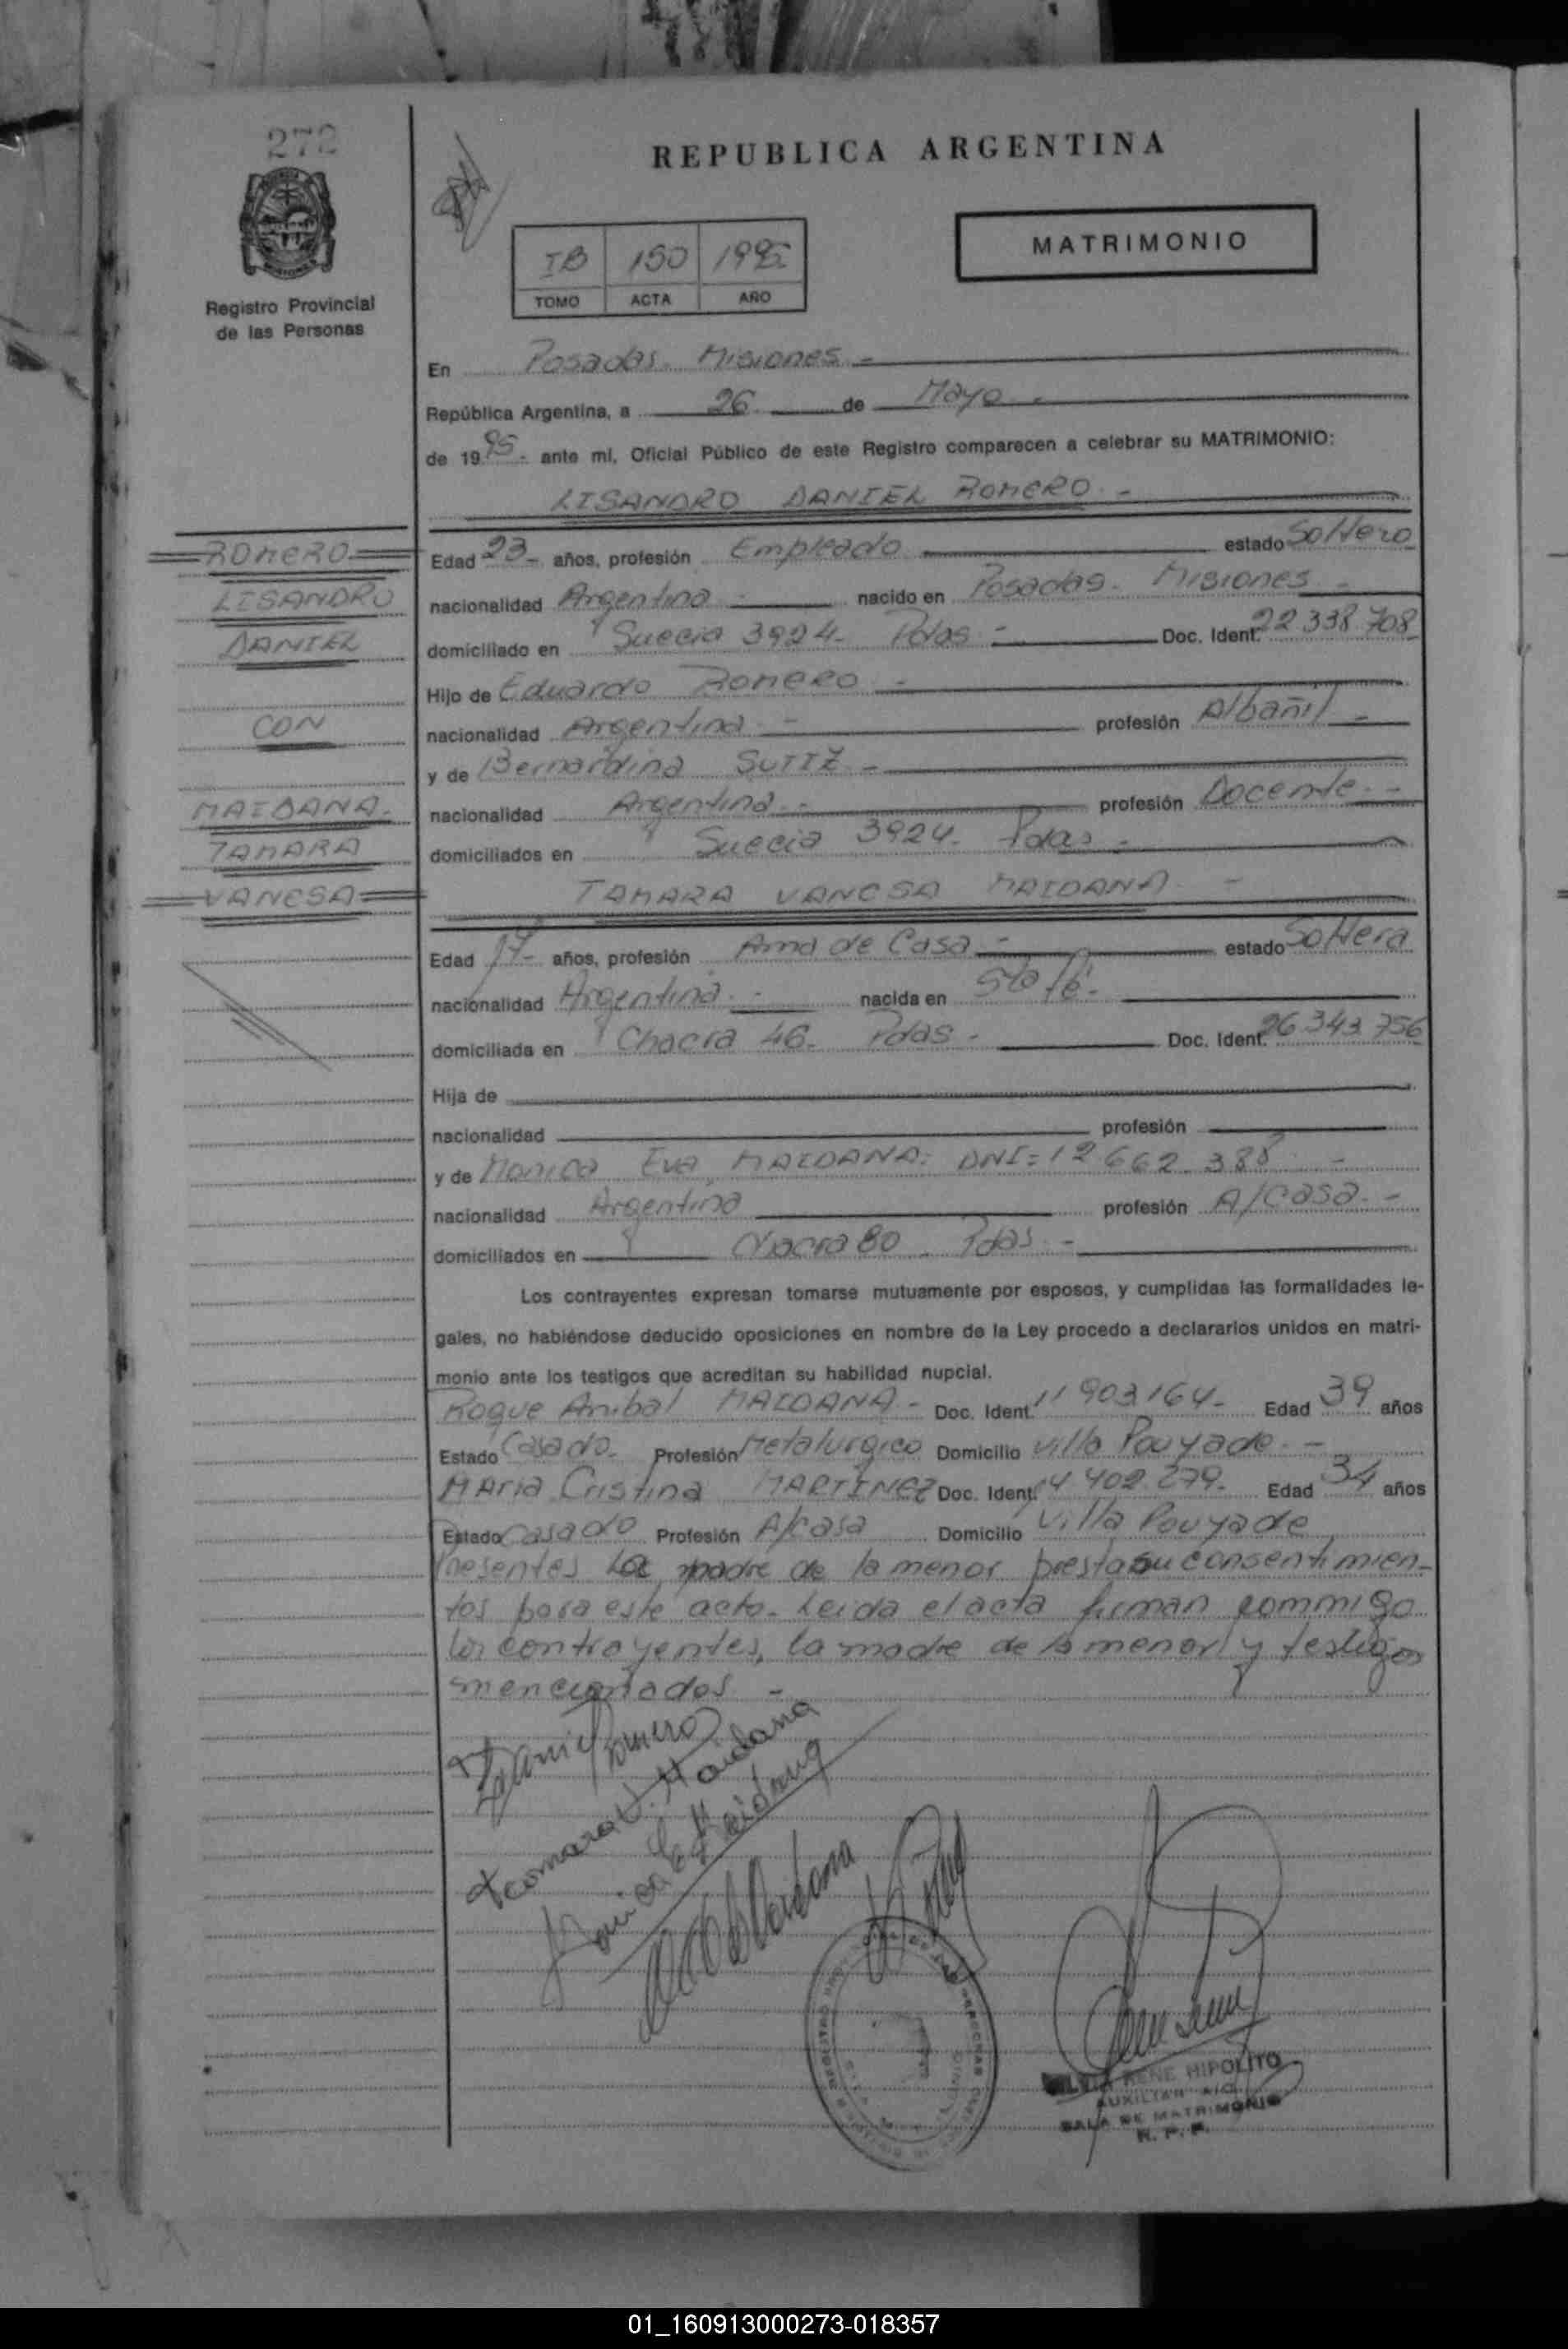 272
REPUBLICA ARGENTINA
MATRIMONIO
IB 150 1995
TOMO ACTA AÑO
Registro Provincial
de las Personas
En Posadas. Misiones -
República Argentina, a 26 de Mayo -
de 1995- ante mí, Oficial Público de este Registro comparecen a celebrar su MATRIMONIO:
LISANDRO DANIEL ROMERO. -
ROMERO
LISANDRO
DANIEL
CON
MAIDANA.
TAMARA
VANESA
Edad 23- años, profesión Empleado estado Soltero
nacionalidad Argentina - nacido en Posadas. Misiones -
domiciliado en Suecia 3924- Pdas - Doc. Ident. 22 338 708
Hijo de Eduardo ROMERO -
nacionalidad Argentina - profesión Albañil -
y de Bernardina -
nacionalidad Argentina - profesión Docente. -
domiciliados en Suecia 3924. Pdas -
TAMARA VANESA MAIDANA -
Edad 17- años, profesión Ama de Casa - estado Soltera
nacionalidad Argentina. - nacida en Sta fé.
domiciliada en Chacra 46. Pdas - Doc. Ident. 26.343.756
Hija de
nacionalidad profesión
y de Monica Eva MAIDANA: DNI=12 662.388 -
nacionalidad Argentina profesión A/casa. -
domiciliados en Chacra 80. Pdas -
Los contrayentes expresan tomarse mutuamente por esposos, y cumplidas las formalidades le-
gales, no habiéndose deducido oposiciones en nombre de la Ley procedo a declararlos unidos en matri-
monio ante los testigos que acreditan su habilidad nupcial.
Roque Anibal MAIDANA - Doc. Ident. 11 903164- Edad 39 años
Estado Casado- Profesión Metalurgico Domicilio Villa Pouyade. -
Maria Cristina MARTINEZ Doc. Ident. 14 402.279. Edad 34 años
Estado casado Profesión A/casa Domicilio Villa Pouyade
Presentes La madre de la menor presta su consentimien-
tos para este acto. Leida el acta firman commigo
los contrayentes, la madre de la menor y testigos
mencionados -
Daniel Romero
Tamara V. Maidana
Monica E. Maidana
Maidana
RENE HIPOLITO
AUXILIAR A/C
SALA DE MATRIMONIO
R. P. P.
01_160913000273-018357